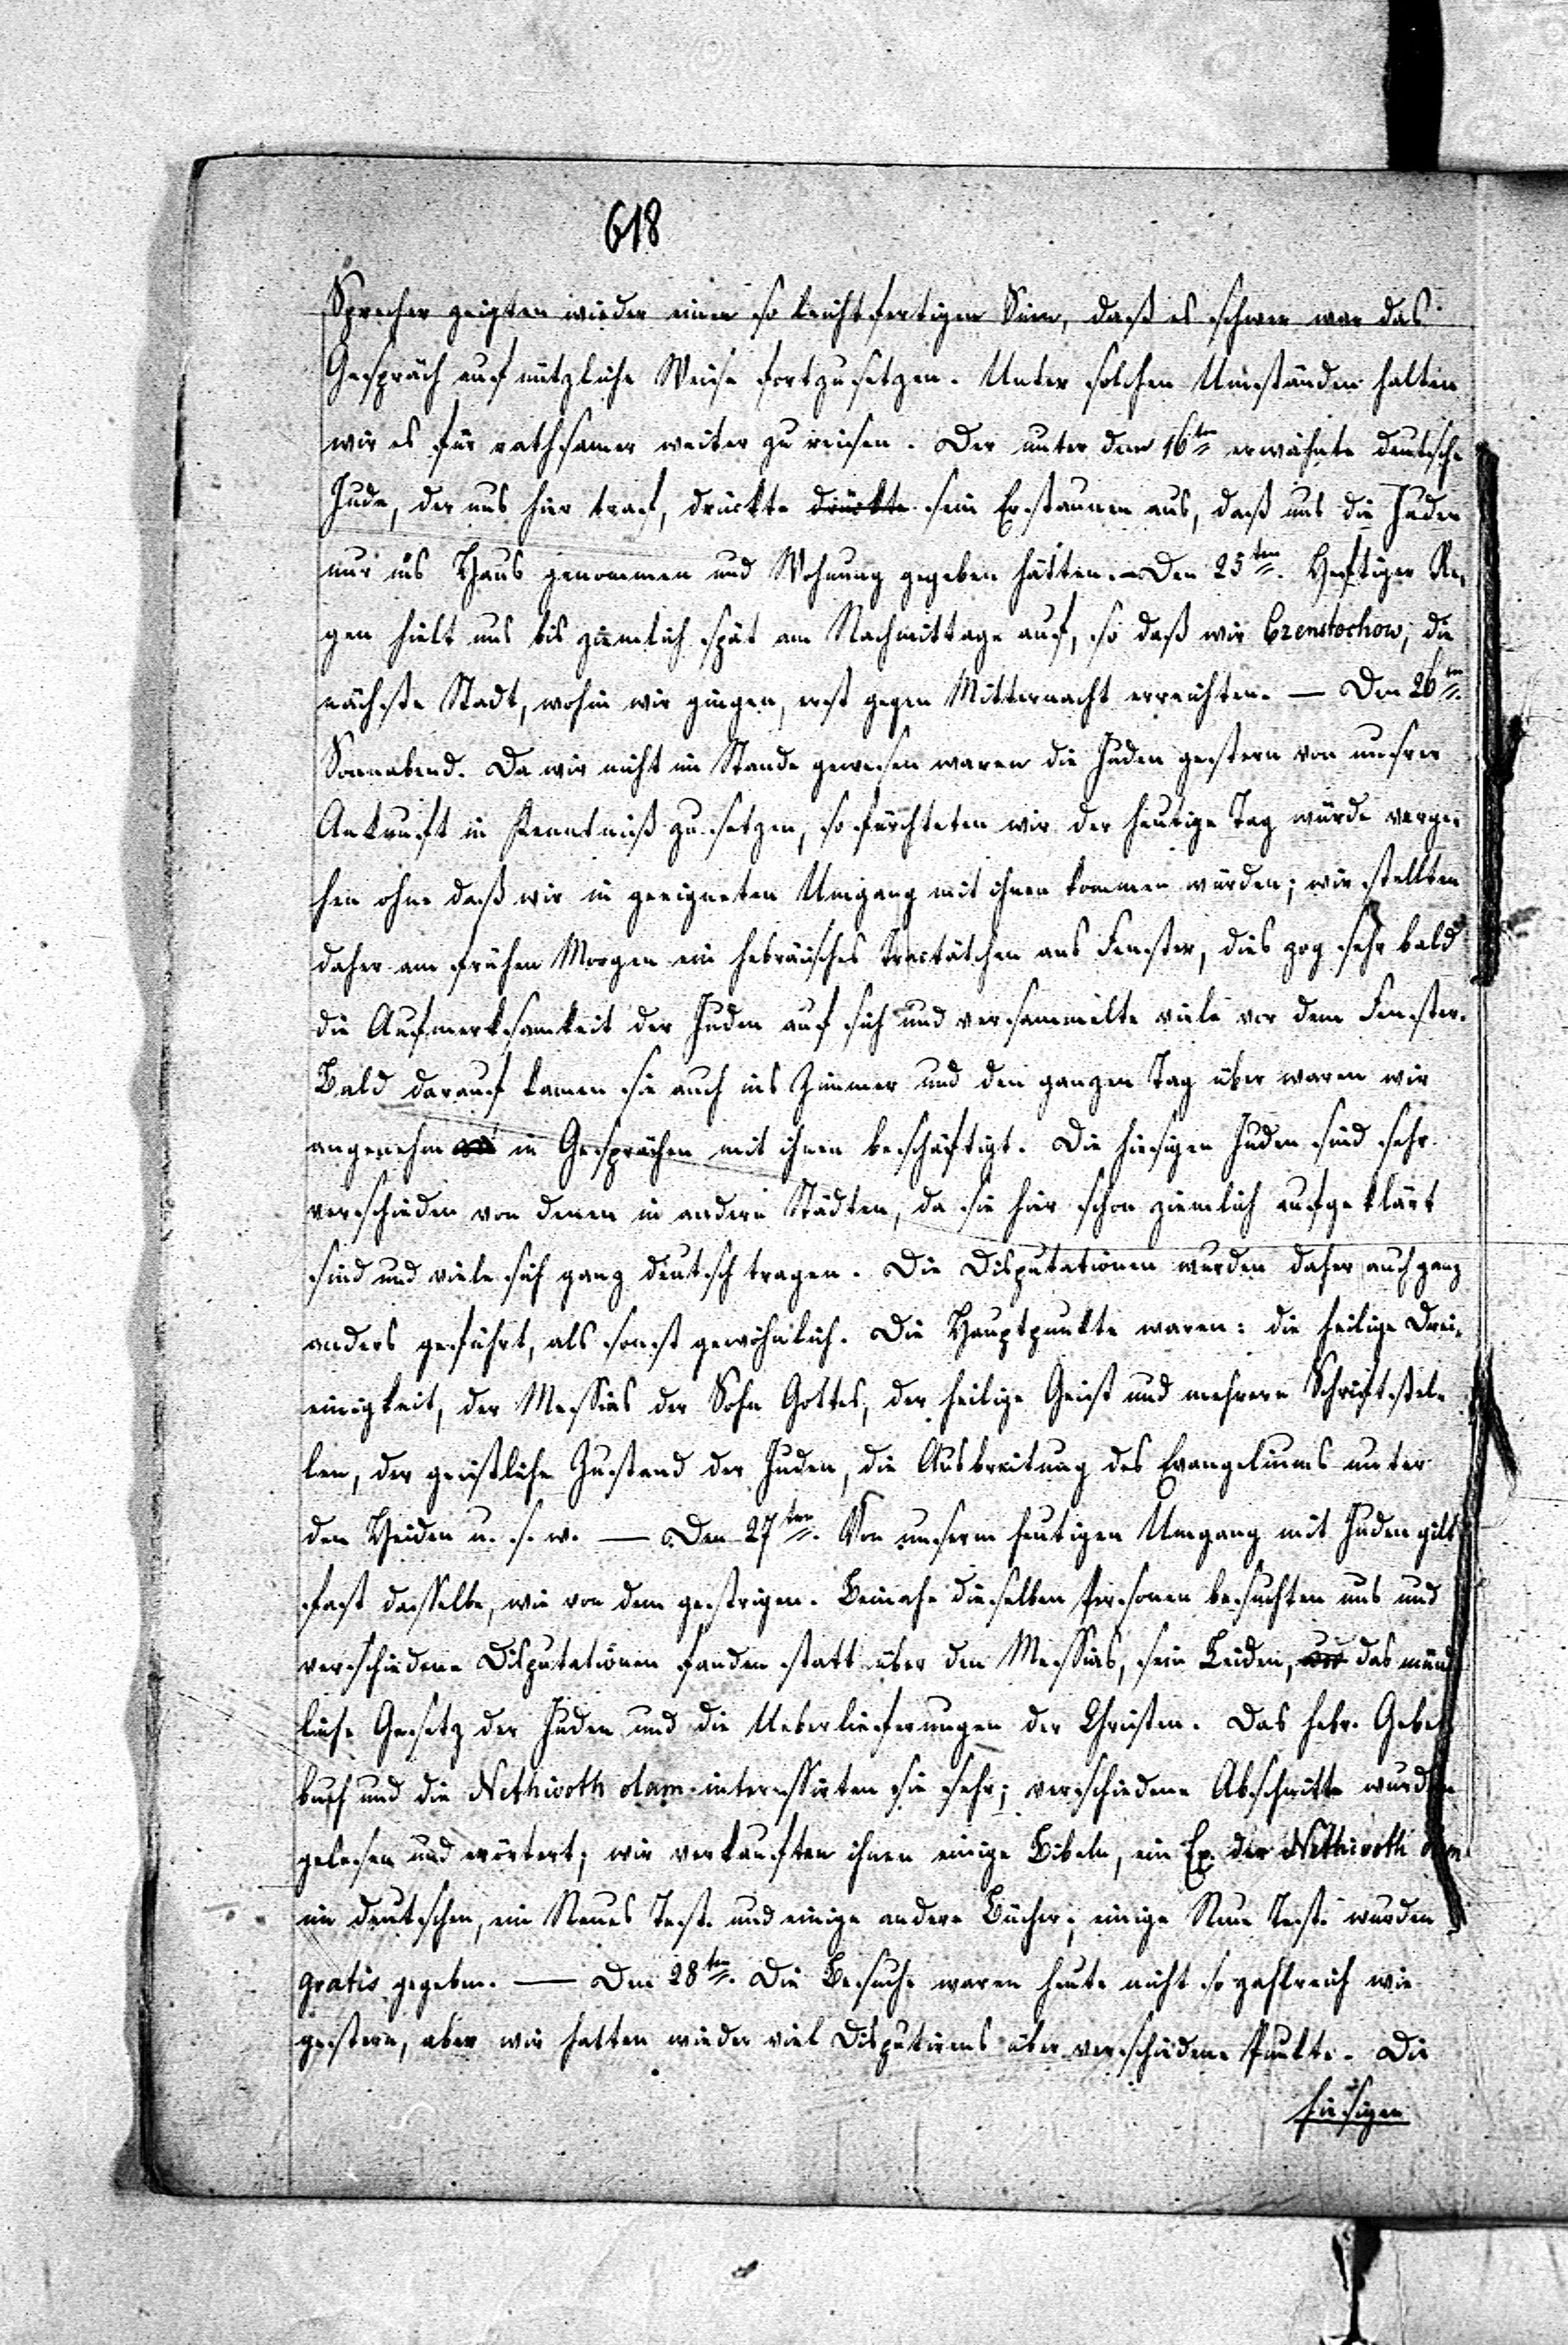 618
Sprecher zeigten wieder einen so leichtfertigen Sinn, daß es schwer war das
Gespräch auf nützliche Weise fortzusetzen. Unter solchen Umständen halten
wir es für rathsamer weiter zu reisen. Der unter dem 16ten erwähnte deutsche
Jude, der uns hier traf, drückte drückte sein Erstaunen aus, daß uns die Juden
nur ins Haus genommen und Wohnung gegeben hätten. — Den 25ten. Heftiger Re-
gen hielt uns bis ziemlich spät am Nachmittage auf, so daß wir Czenstochow, die
nächste Stadt, wohin wir gingen, erst gegen Mitternacht erreichten. — Den 26ten.
Sonnabend. Da wir nicht im Stande gewesen waren die Juden gestern von unsrer
Ankunft in Kenntniß zu setzen, so fürchteten wir der heutige Tag würde verge-
hen ohne daß wir in geeigneten Umgang mit ihnen kommen würden; wir stellten
daher am frühen Morgen ein hebräisches Tractätchen ans Fenster, dies zog sehr bald
die Aufmerksamkeit der Juden auf sich und versammelte viele vor dem Fenster.
Bald darauf kamen sie auch ins Zimmer und den ganzen Tag über waren wir
angenehm in Gesprächen mit ihnen beschäftigt. Die hiesigen Juden sind sehr
verschieden von denen in andern Städten, da sie hier schon ziemlich aufgeklärt
sind und viele sich ganz deutsch tragen. Die Disputationen wurden daher auch ganz
anders geführt, als sonst gewöhnlich. Die Hauptpunkte waren: die heilige Drei-
einigkeit, der Messias der Sohn Gottes, der heilige Geist und mehrere Schriftstel-
len, der geistliche Zustand der Juden, die Ausbreitung des Evangeliums unter
den Heiden u. s. w. — Den 27ten. Von unserm heutigen Umgang mit Juden gilt
fast dasselbe, wie von dem gestrigen. Beinahe dieselben Personen besuchten uns und
verschiedene Disputationen fanden statt über den Messias, sein Leiden, das münd-
liche Gesetz der Juden und die Ueberlieferungen der Christen. Das hebr. Gebet-
buch und die Nethivoth olam interessirten sie sehr; verschiedene Abschnitte wurden
gelesen und erörtert; wir verkauften ihnen einige Bibeln, ein Ex. der Nethivoth olam
im deutschen, ein Neues Test. und einige andere Bücher; einige Neue Test. wurden
gratis gegeben. — Den 28ten. Die Besuche waren heute nicht so zahlreich wie
gestern, aber wir hatten wieder viel Disputirens über verschiedene Punkte. Die
hiesigen